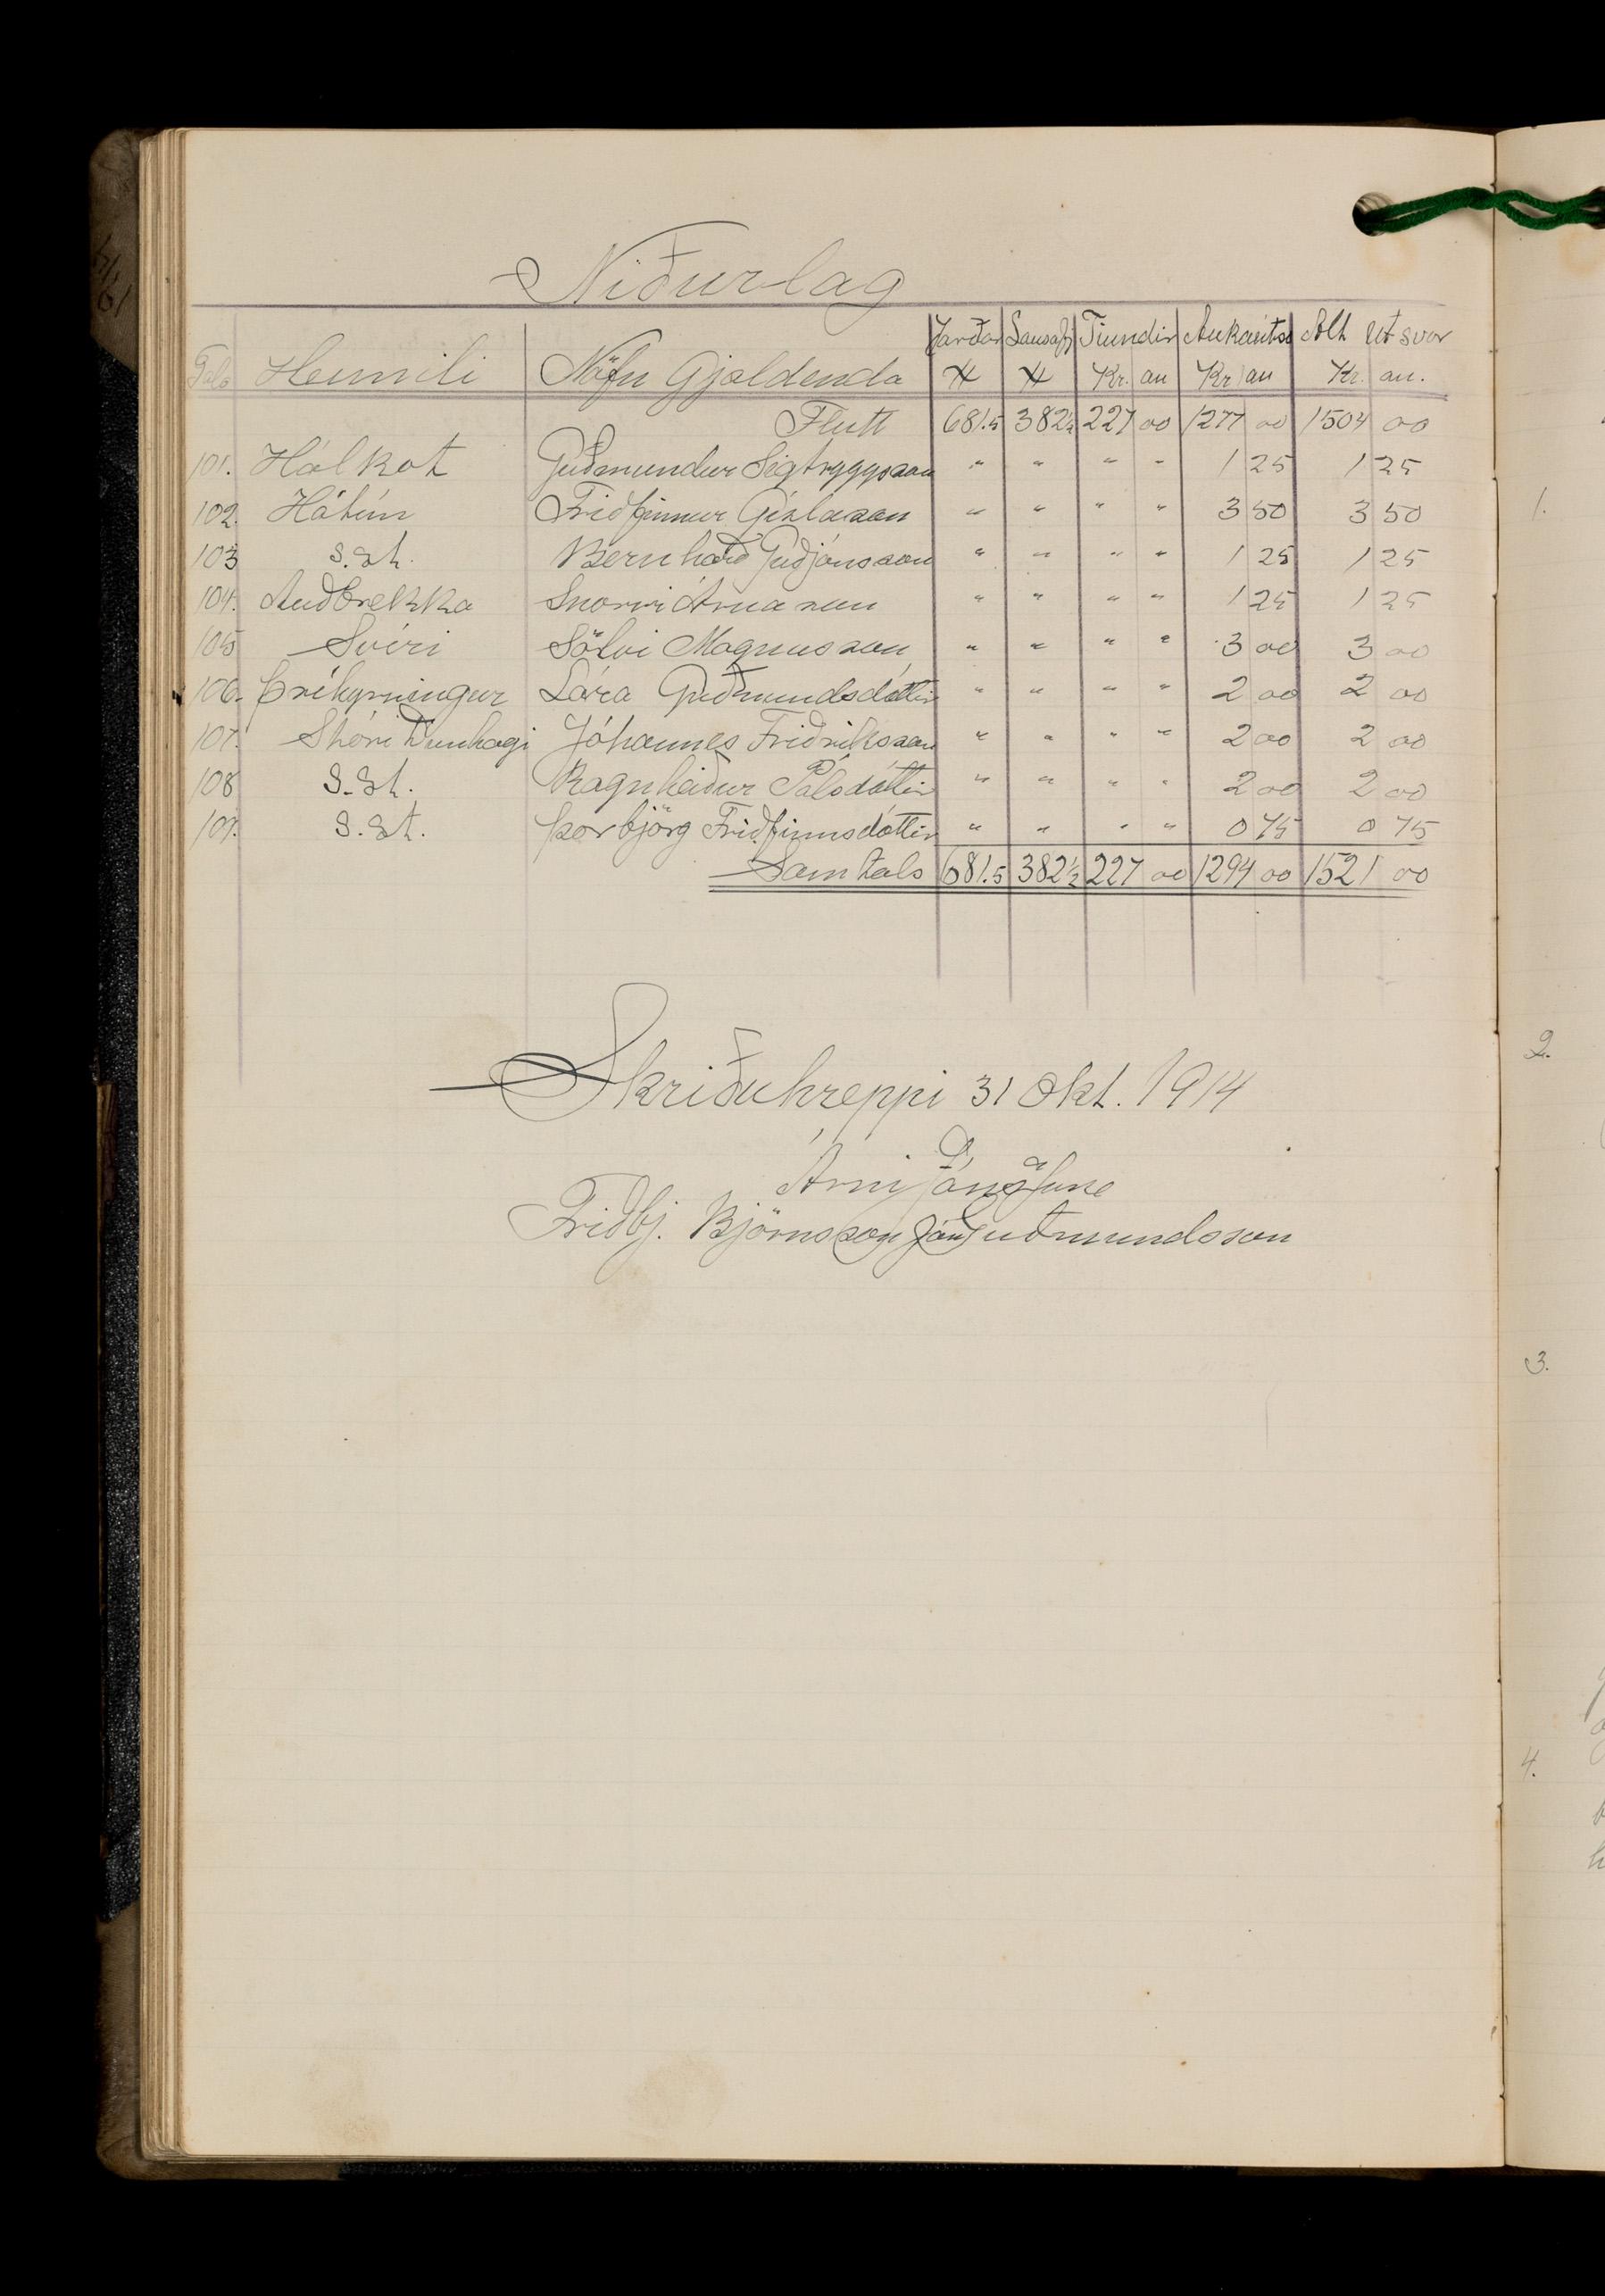 Niðurlag
Tala Heimili Nöfn Gjaldenda Jarðar Lausafj Tíundir Aukaútsv Allt útsvar
Kr. au Kr au Kr. au.
Flutt 681.5 382½ 227 00 1277 00 1504 00
101. Hálkot Guðmundur Sigtryggsson " " " " 1 25 1 25
102. Hátún Friðfinnur Gíslason " " " " 3 50 3 50
103 S.st. Bernharð Guðjónsson " " " " 1 25 1 25
104. Auðbrekka Snorri Árnason " " " " 1 25 1 25
105 Svíri Sölvi Magnússon " " " " 3 00 3 00
106. Þríhyrningur Lára Guðmundsdóttir " " " " 2 00 2 00
107. Stóri Dunhagi Jóhannes Friðriksson " " " " 2 00 2 00
108 S.st. Ragnheiður Pálsdóttir " " " " 2 00 2 00
109. S.st. Þorbjörg Friðfinnsdóttir " " " " 0 75 0 75
Samtals 681.5 382½ 227 00 1294 00 1521 00
Skriðuhreppi 31 Okt. 1914
Árni Jónsson
Friðbj. Björnsson Jón Guðmundsson
1.
2.
3.
4.